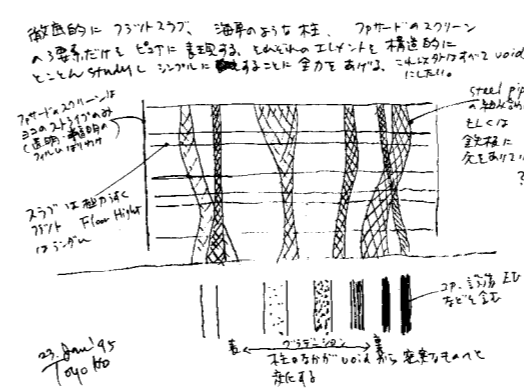 徹底的に フラットスラブ、海草のような柱、ファサードのスクリーン
の3要素だけを ピュアに 表現する、それぞれのエレメントを 構造的に
とことん studyし シンプルにすることに 全力をあげる、これ以外はすべて void
にしたい。
ファサードのスクリーンは
ヨコのストライプのみ
(透明、半透明の
フィルムばりわけ
スラブは極力うすく
フラット Floor Hight
はランダム
steel pip
の組み合わ
もしくは
鉄板に
穴をあけて
?
コア、設備、EV
などを含む
グラデーション
柱のなかが void から 密実なものへと
変化する
23. Jan. '95
Toyo Ito